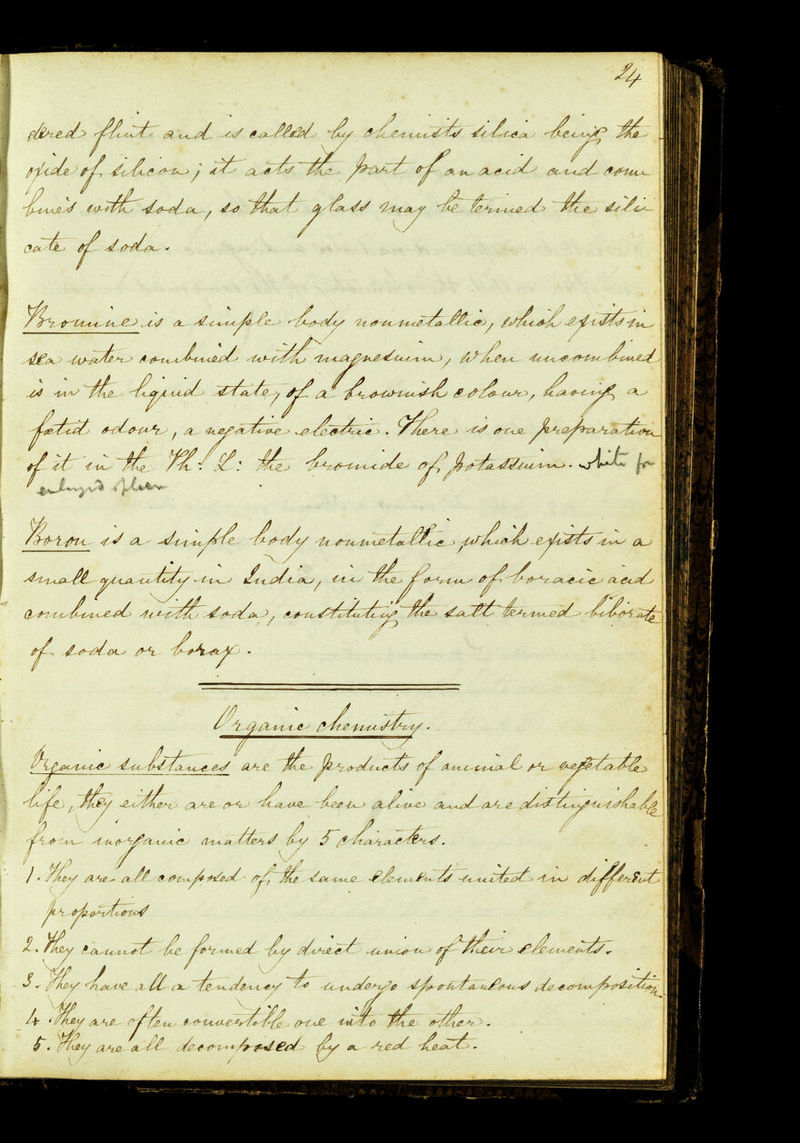 24
dered flint and is called by chemists silica being the
oxide of silicon; it acts the part of an acid and com
bines with soda, so that glass may be termed the sili
cate of soda.
Bromine is a simple body nonmetallic, which exists in
sea water combined with magnesium, when uncombined
is in the liquid state, of a brownish colour, having a
fœtid odour, a negative electric. There is one preparation
of it in the Ph: L: the bromide of potassium. white for
enlarged spleen
Boron is a simple body nonmetallic which exists in a
small quantity in India, in the form of boracic acid
combined with soda, constituting the salt termed biborate
of soda or borax.
Organic chemistry.
Organic substances are the products of animal or vegetable
life, they either are or have been alive and are distinguishable
from inorganic matters by 5 characters.
1. They are all composed of, the same elements united in different
proportions
2. They cannot be formed by direct union of their elements.
3. They have all a tendency to undergo spontaneous decomposition.
4. They are often convertible one into the other.
5. They are all decomposed by a red heat.